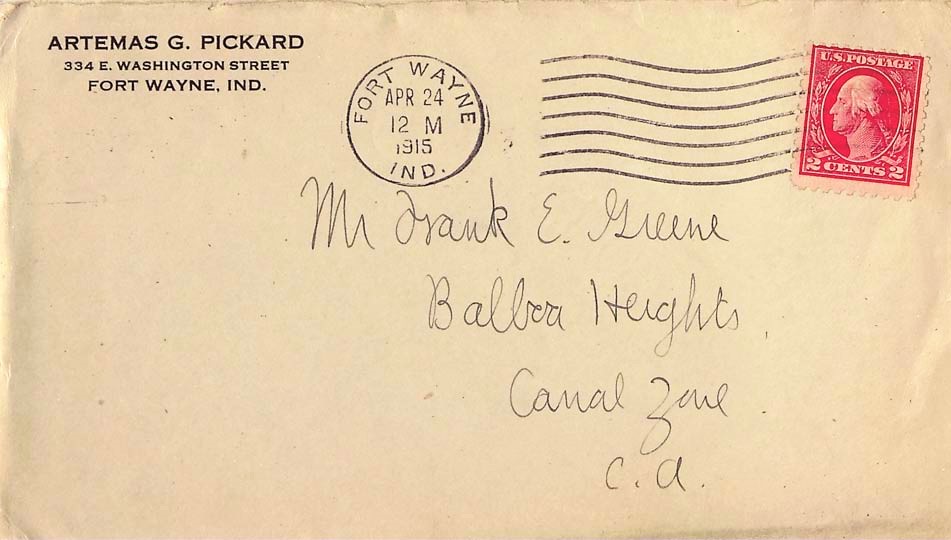 ARTEMAS G. PICKARD
334 E. WASHINGTON STREET
FORT WAYNE, IND.
FORT WAYNE
APR 24
12 M
1915
IND.
U.S. POSTAGE
2 CENTS 2
Mr Frank E. Greene
Balboa Heights,
Canal Zone.
C. A.